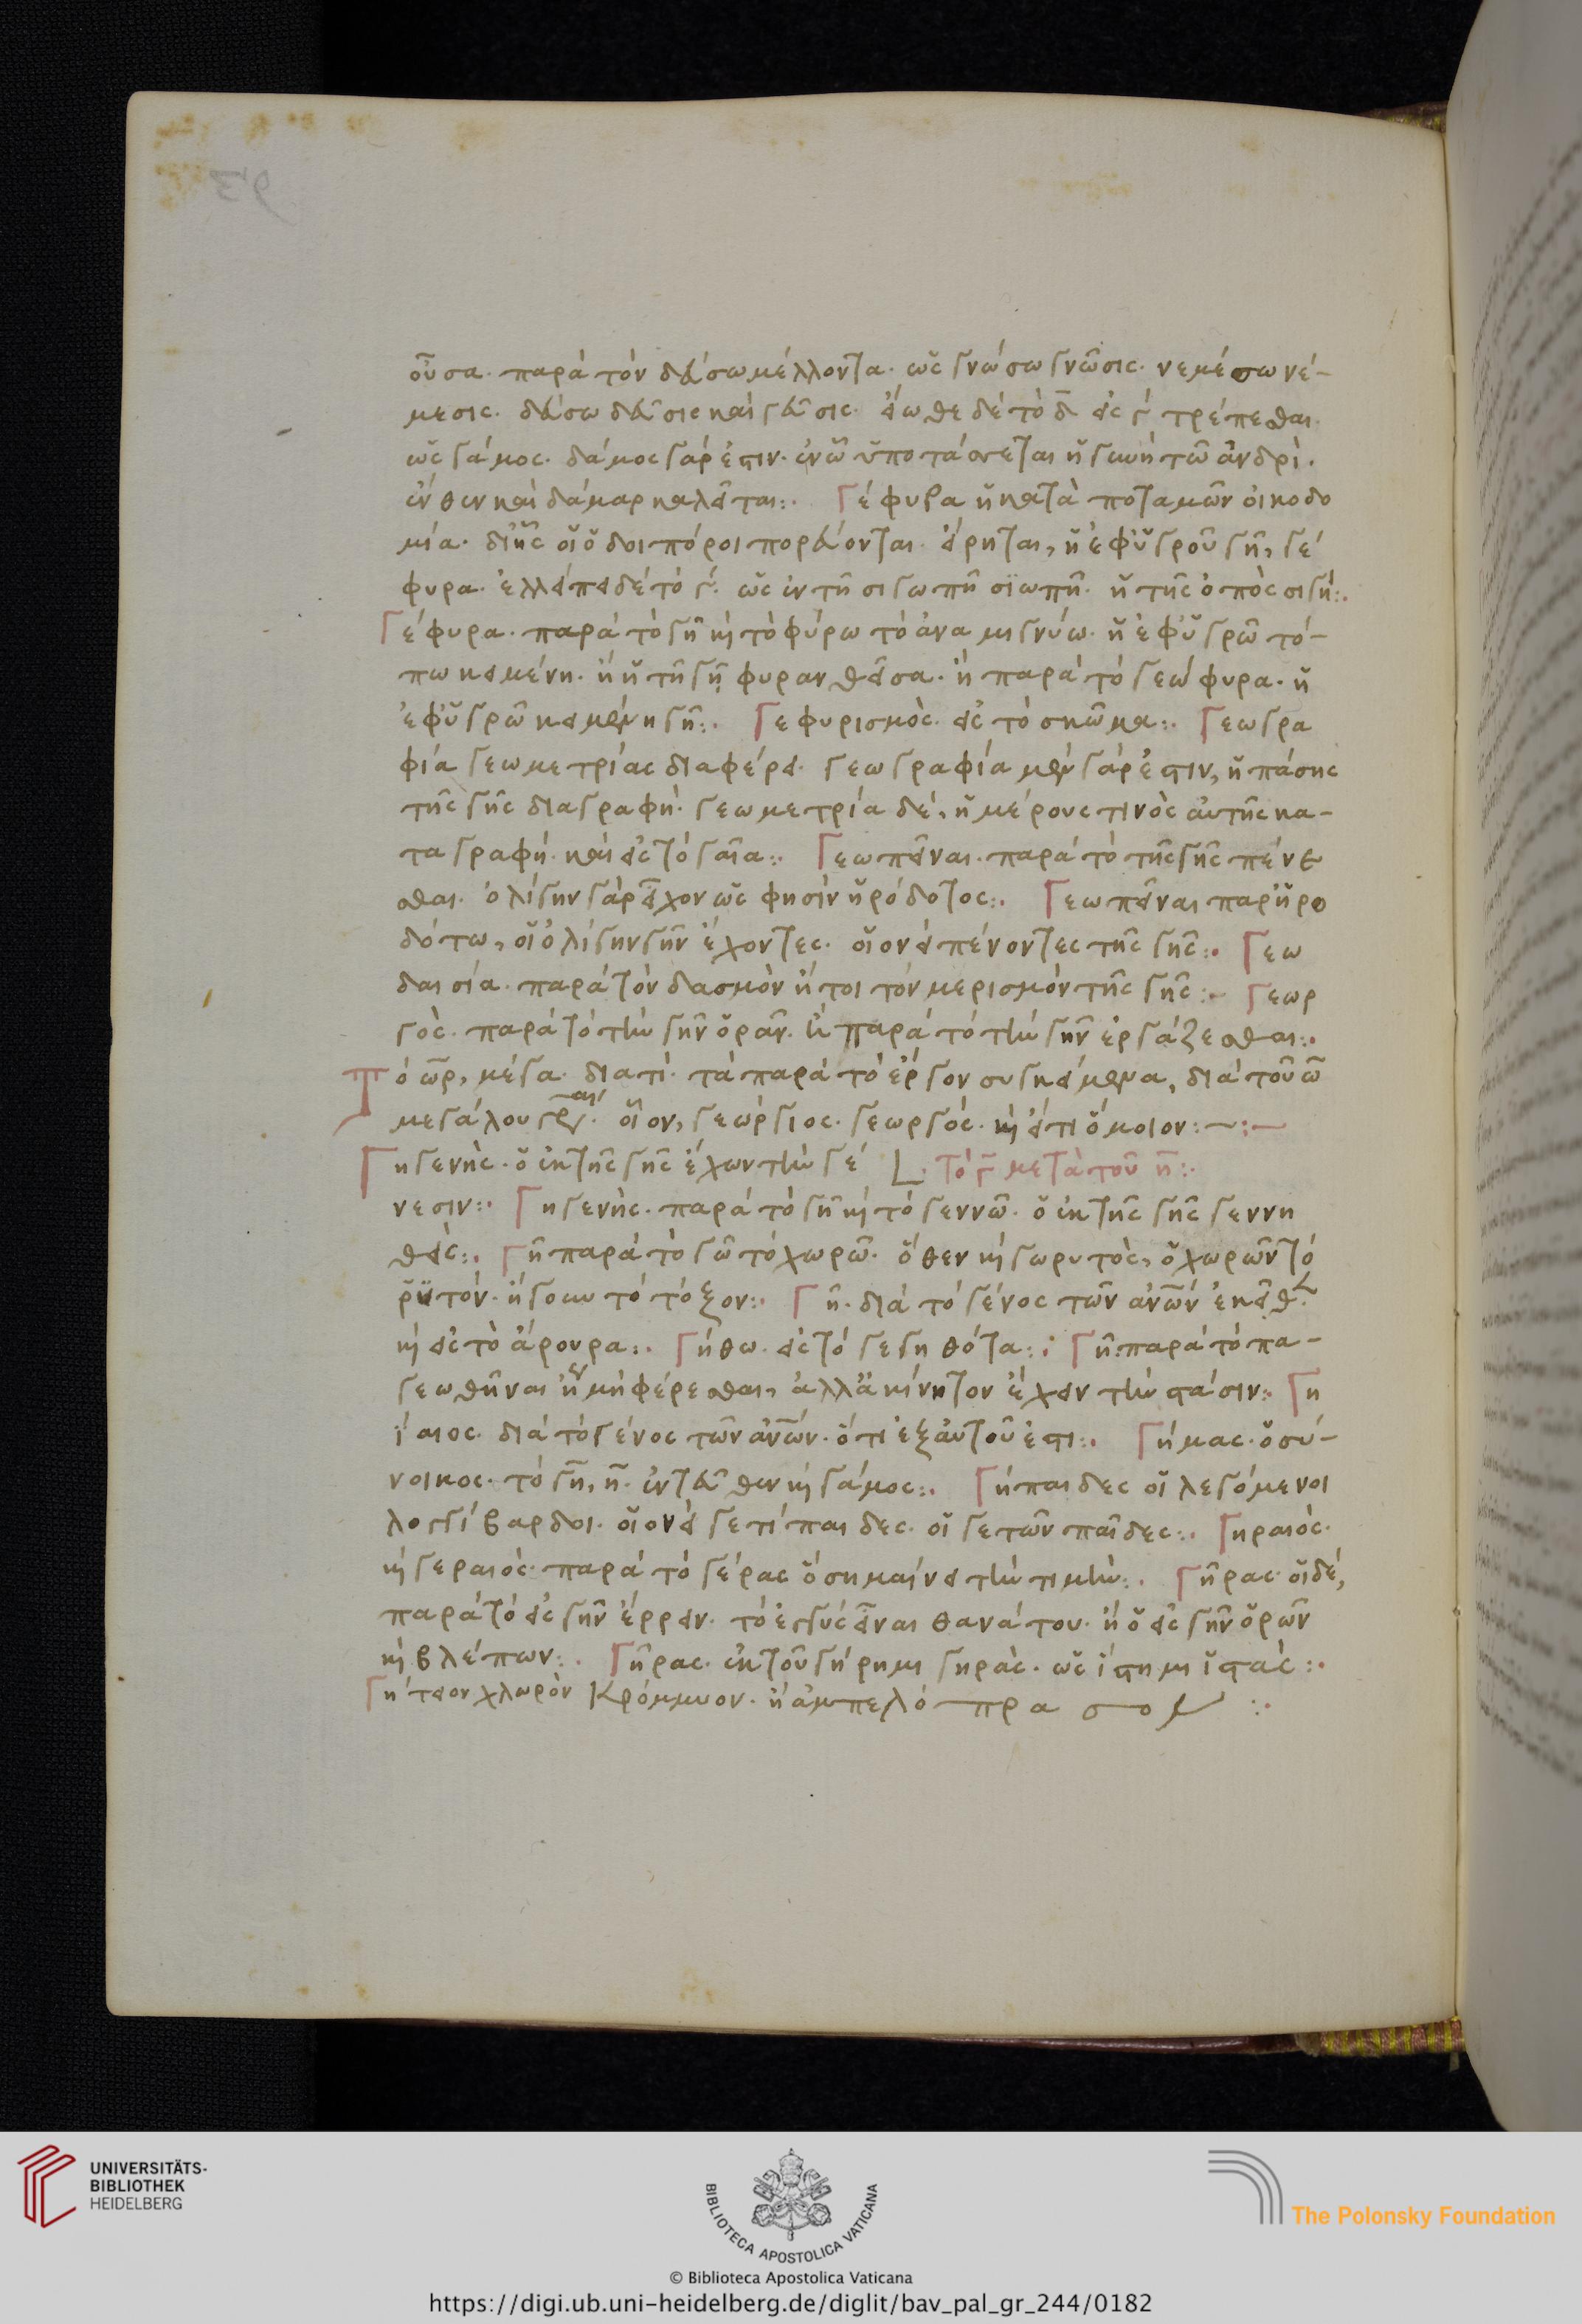 οὖσα. παρὰ τὸν δεύσω μέλλοντα. ὡς γνώσω γνῶσις. νεμέσω νέ-
μεσις. δεύσω δεῦσις καὶ γεῦσις. εἴωθε δὲ τὸ δ̄ εἰς γ̄ τρέπεσθαι.
ὡς γάμος. δάμος γάρ ἐστιν. ἐν ὧ ὑποτάσσεται ἡ γυνὴ τῶ ἀνδρί.
ἔνθεν καὶ δάμαρ καλεῖται:. Γέφυρα ἡ κατὰ ποταμῶν οἰκοδο
μία. δι' ἧς οἱ ὁδοιπόροι πορεύονται. εἴρηται, ἡ ἐφ' ὑγροῦ γῆ, γέ
φυρα. ἐλλείπει δὲ τὸ γ̄. ὡς ἐν τῆ σιγωπῆ σϊωπῆ. ἡ τῆς ὀπὸς σιγή:.
Γέφυρα. παρὰ τὸ γῆ κὶ τὸ φύρω τὸ ἀναμιγνύω. ἡ ἐφ' ὑγρῶ τό-
πω κειμένη. ἢ ἡ τῆ γῆ φυρανθεῖσα. ἢ παρὰ τὸ γεώφυρα. ἡ
ἐφ' ὑγρῶ κειμένη γῆ:. Γεφυρισμὸς. εἰς τὸ σκῶμα:. Γεωγρα
φία γεωμετρίας διαφέρει. γεωγραφία μὲν γάρ ἐστιν, ἡ πάσης
τῆς γῆς διαγραφή. γεωμετρία δέ, ἡ μέρους τινὸς αὐτῆς κα-
ταγραφή. καὶ εἰς τὸ γαῖα:. Γεωπεῖναι. παρὰ τὸ τῆς γῆς πένε
σθαι. ὀλίγην γὰρ εἶχον ὡς φησὶν ἡρόδοτος:. Γεωπεῖναι παρ' ἡρο
δότω, οἱ ὀλίγην γῆν ἔχοντες. οἱονεὶ πένοντες τῆς γῆς:. Γεω
δαισία. παρὰ τὸν δασμὸν ἤτοι τὸν μερισμὸν τῆς γῆς:- Γεωρ
γὸς. παρὰ τὸ τὴν γῆν ὁρᾶν. ἢ παρὰ τὸ τὴν γῆν ἐργάζεσθαι:.
Τὸ ω̄ρ, μέγα. διατί. τὰ παρὰ τὸ ἔργον συγκείμενα, διὰ τοῦ ω̄
μεγάλου γρ. οἷον, γεώργιος. γεωργός. κὶ εἴ τι ὅμοιον:~:~
Γηγενὴς. ὁ ἐκ τῆς γῆς ἔχων τὴν γέ Τὸ γ̄ μετὰ τοῦ η̄:.
νεσιν:. Γηγενὴς. παρὰ τὸ γῆ κὶ τὸ γεννῶ. ὁ ἐκ τῆς γῆς γεννη
θείς:. Γῆ παρὰ τὸ γῶ τὸ χωρῶ. ὅθεν κὶ γωρυτὸς, ὁ χωρῶν τὸ
ῥϋτόν. ἤγουν τὸ τόξον:. Γῆ. διὰ τὸ γένος τῶν ἀνω̄ν ἐκεῖθεν
κὶ εἰς τὸ ἄρουρα:. Γήθω. εἰς τὸ γεγηθότα:. Γῆ παρὰ τὸ πα-
γεωθῆναι ἢ μὴ φέρεσθαι, ἀλλ' ἀκίνητον ἔχειν τὴν στάσιν:. Γη
ίαιος. διὰ τὸ γένος τῶν ἀνω̄ν. ὅτι ἐξ αὐτοῦ ἐστι:. Γήμας. ὁ σύ-
νοικος. τὸ γη̄, η̄. ἐντεῦθεν κὶ γάμος:. Γήπαιδες οἱ λεγόμενοι
λογγίβαρδοι. οἱονεὶ γετίπαιδες. οἱ γετῶν παῖδες:. Γηραιὸς.
κὶ γεραιός. παρὰ τὸ γέρας ὃ σημαίνει τὴν τιμὴν:. Γῆρας. οἱ δέ,
παρὰ τὸ εἰς γῆν ἔρρειν. τὸ ἐγγὺς εἶναι θανάτου. ἢ ὁ εἰς γῆν ὁρῶν
κὶ βλέπων:. Γῆρας. ἐκ τοῦ γήρημι γηρὰς. ὡς ἵστημι ἱστὰς:.
Γήτειον χλωρὸν κρόμμυον. ἢ ἀμπελόπρασον:.
UNIVERSITÄTS-
BIBLIOTHEK
HEIDELBERG
BIBLIOTECA APOSTOLICA VATICANA
The Polonsky Foundation
© Biblioteca Apostolica Vaticana
https://digi.ub.uni-heidelberg.de/diglit/bav_pal_gr_244/0182